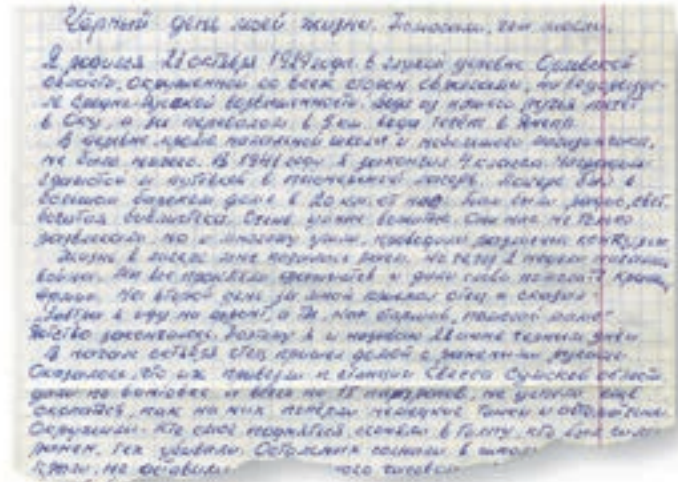 Чёрный день моей жизни. Помогали, чем могли.
Я родился 21 октября 1929 года в глухой деревне Орловской
области, окружённой со всех сторон лесами, на водоразде-
ле Средне-Русской возвышенности. Вода из нашего ручья течёт
в Оку, а за перевалом в 5 км вода течёт в Днепр.
В деревне, кроме начальной школы и небольшого магазинчика,
не было ничего. В 1941 году я закончил 4 класса
грамотой и путёвкой в пионерский лагерь. Лагерь был в
большом барском доме в 20 км. от нас. Там были
богатая библиотека. Очень умные вожатые. Они нас не только
развлекали, но и многому учили, проводили различные конкурсы.
Жизнь в лагере мне нравилась. Но через 2 недели началась
война. Мы все и дали слово помогать Красной
Армии. На второй день за мной приехал отец и сказал:
Завтра я иду на фронт, а ты, как старший, помогай маме.
Детство закончилось. Поэтому я и называю 22 июня чёрным днём
В начале октября отец пришёл домой с
Оказалось, что их привезли к станции Свесса Сумской области
дали по винтовке и всего по 15 патронов, не успели ещё
окопаться, как на них попёрли немецкие танки и
Окружили. Кто смог подняться, согнали в толпу, кто был
ранен, тех убивали. Остальных согнали в
не оставили